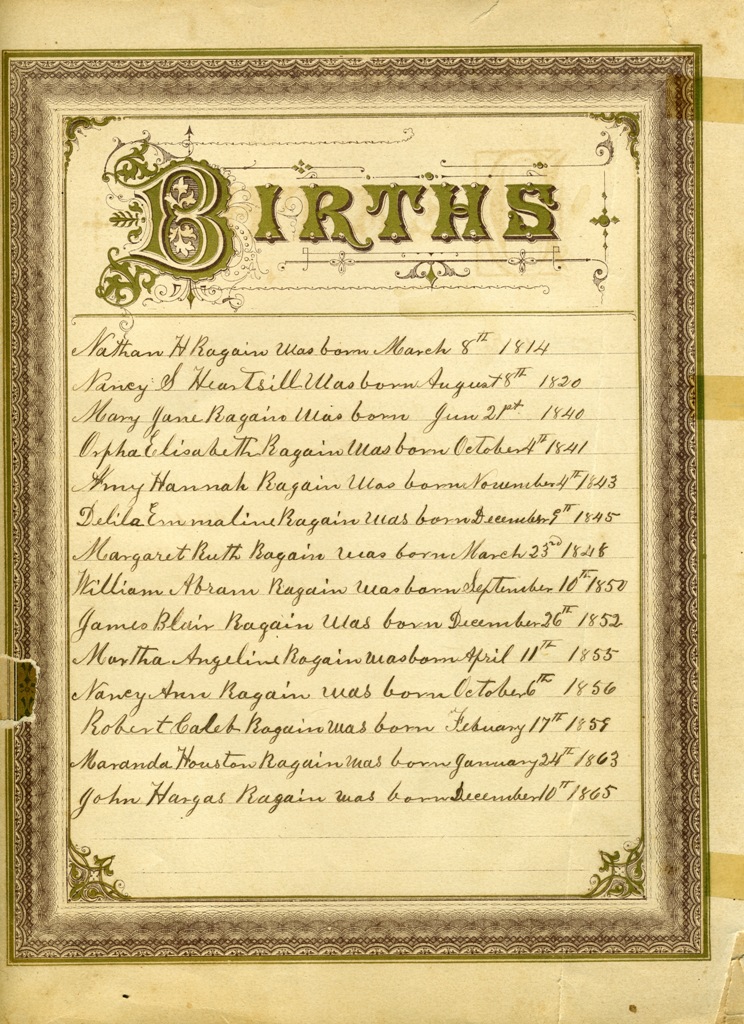 BIRTHS
Nathan H Ragain Was born March 8th 1814
Nancy S Heartsill Was born August 8th 1820
Mary Jane Ragain Was born Jun 21st 1840
Orpha Elisabeth Ragain Was born October 4th 1841
Amy Hannah Ragain Was born November 4th 1843
Delila Emmaline Ragain Was born December 9th 1845
Margaret Ruth Ragain was born March 23rd 1848
William Abram Ragain Was born September 10th 1850
James Blair Ragain Was born December 26th 1852
Martha Angeline Ragain was born April 11th 1855
Nancy Ann Ragain was born October 6th 1856
Robert Caleb Ragain was born Febuary 17th 1859
Maranda Houston Ragain was born January 24th 1863
John Hargas Ragain was born December 10th 1865